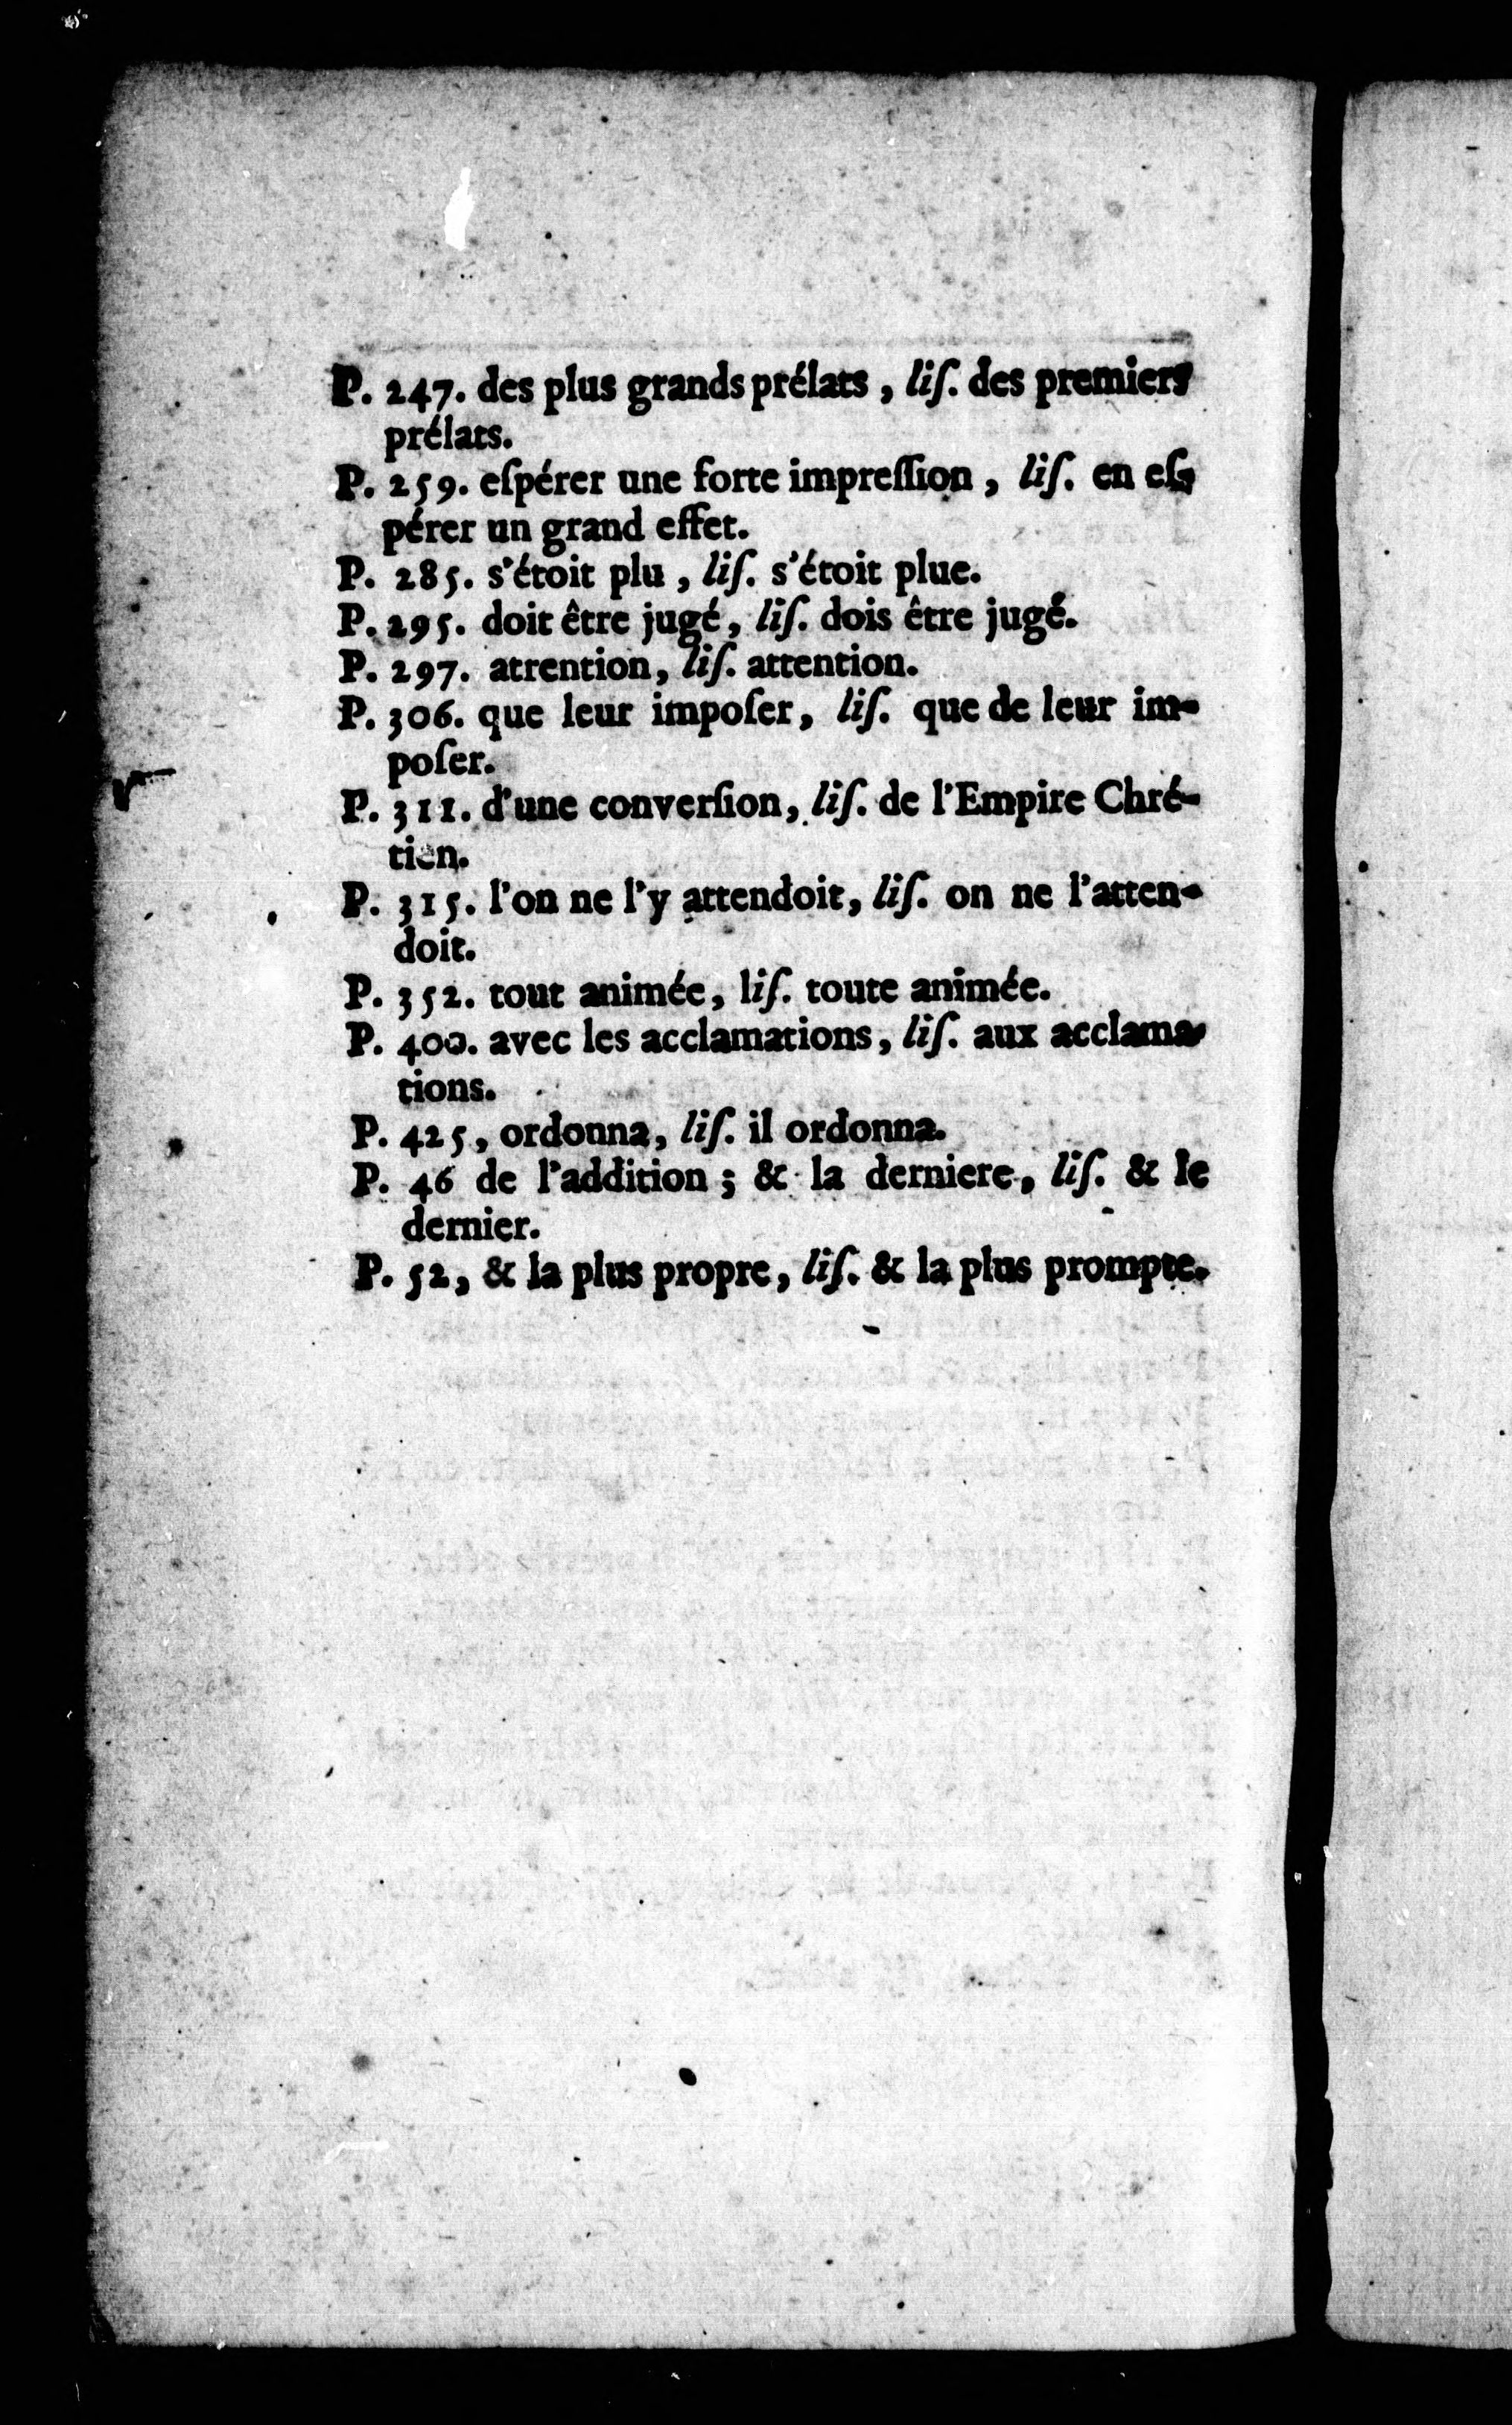 P. 247. des plus grands prélats, liſ. des premiers
prélats.
P. 259. eſpérer une forte impreſſion, liſ. en eſ-
pérer un grand effet.
P. 285. s'étoit plu, liſ. s'étoit plue.
P. 295. doit être jugé, liſ. dois être jugé.
P. 297. atrention, liſ. attention.
P. 306. que leur impoſer, liſ. que de leur im-
poſer.
P. 311. d'une converſion, liſ. de l'Empire Chré-
tien.
P. 315. l'on ne l'y attendoit, liſ. on ne l'atten-
doit.
P. 352. tout animée, liſ. toute animée.
P. 400. avec les acclamations, liſ. aux acclama-
tions.
P. 425, ordonna, liſ. il ordonna.
P. 46 de l'addition; & la derniere, liſ. & le
dernier.
P. 52, & la plus propre, liſ. & la plus prompte.